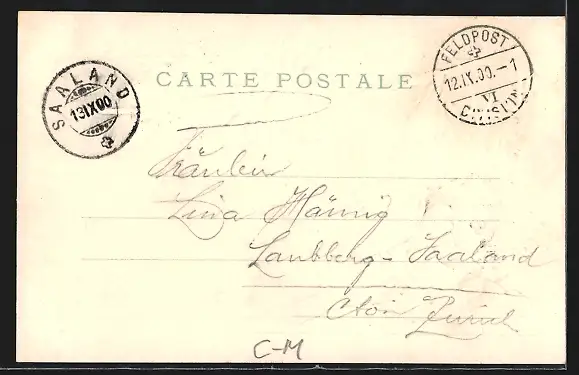 CARTE POSTALE
SAALAND
13 IX 00
FELDPOST
12.IX.00.-1
VI
DIVISION
Fräulein
Lina Hännig
Laubberg - Saaland
Cton Zürich
C-M